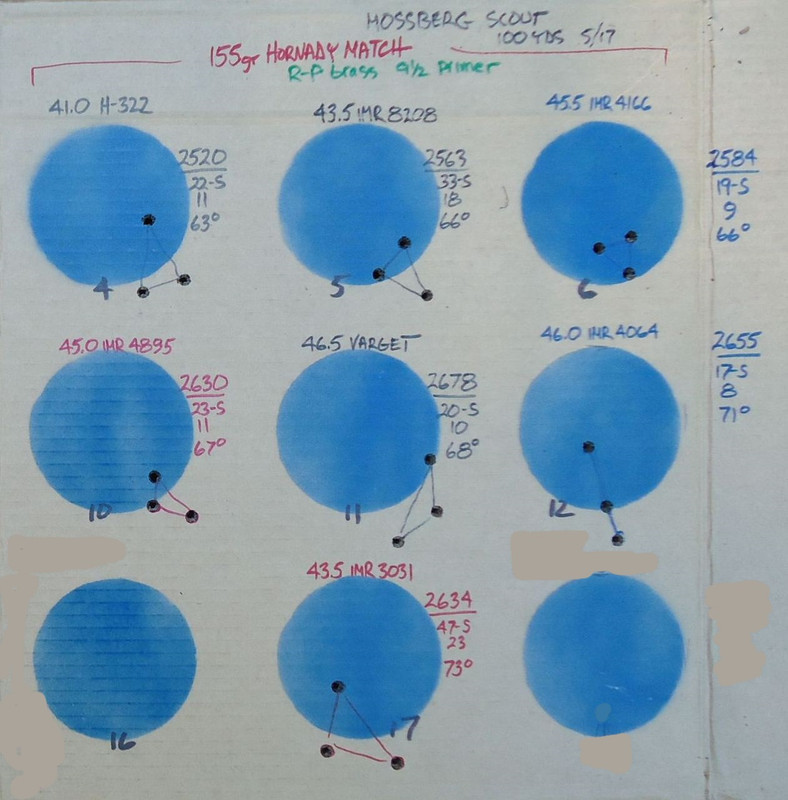 MOSSBERG SCOUT
100 YDS 5/17
155gr HORNADY MATCH
R-P brass 9½ primer
41.0 H-322
2520
22-S
11
63°
4
43.5 IMR 8208
2563
33-S
18
66°
5
45.5 IMR 4166
2584
19-S
9
66°
6
45.0 IMR 4895
2630
23-S
11
67°
10
46.5 VARGET
2678
20-S
10
68°
11
46.0 IMR 4064
2655
17-S
8
71°
12
16
43.5 IMR 3031
2634
47-S
23
73°
17